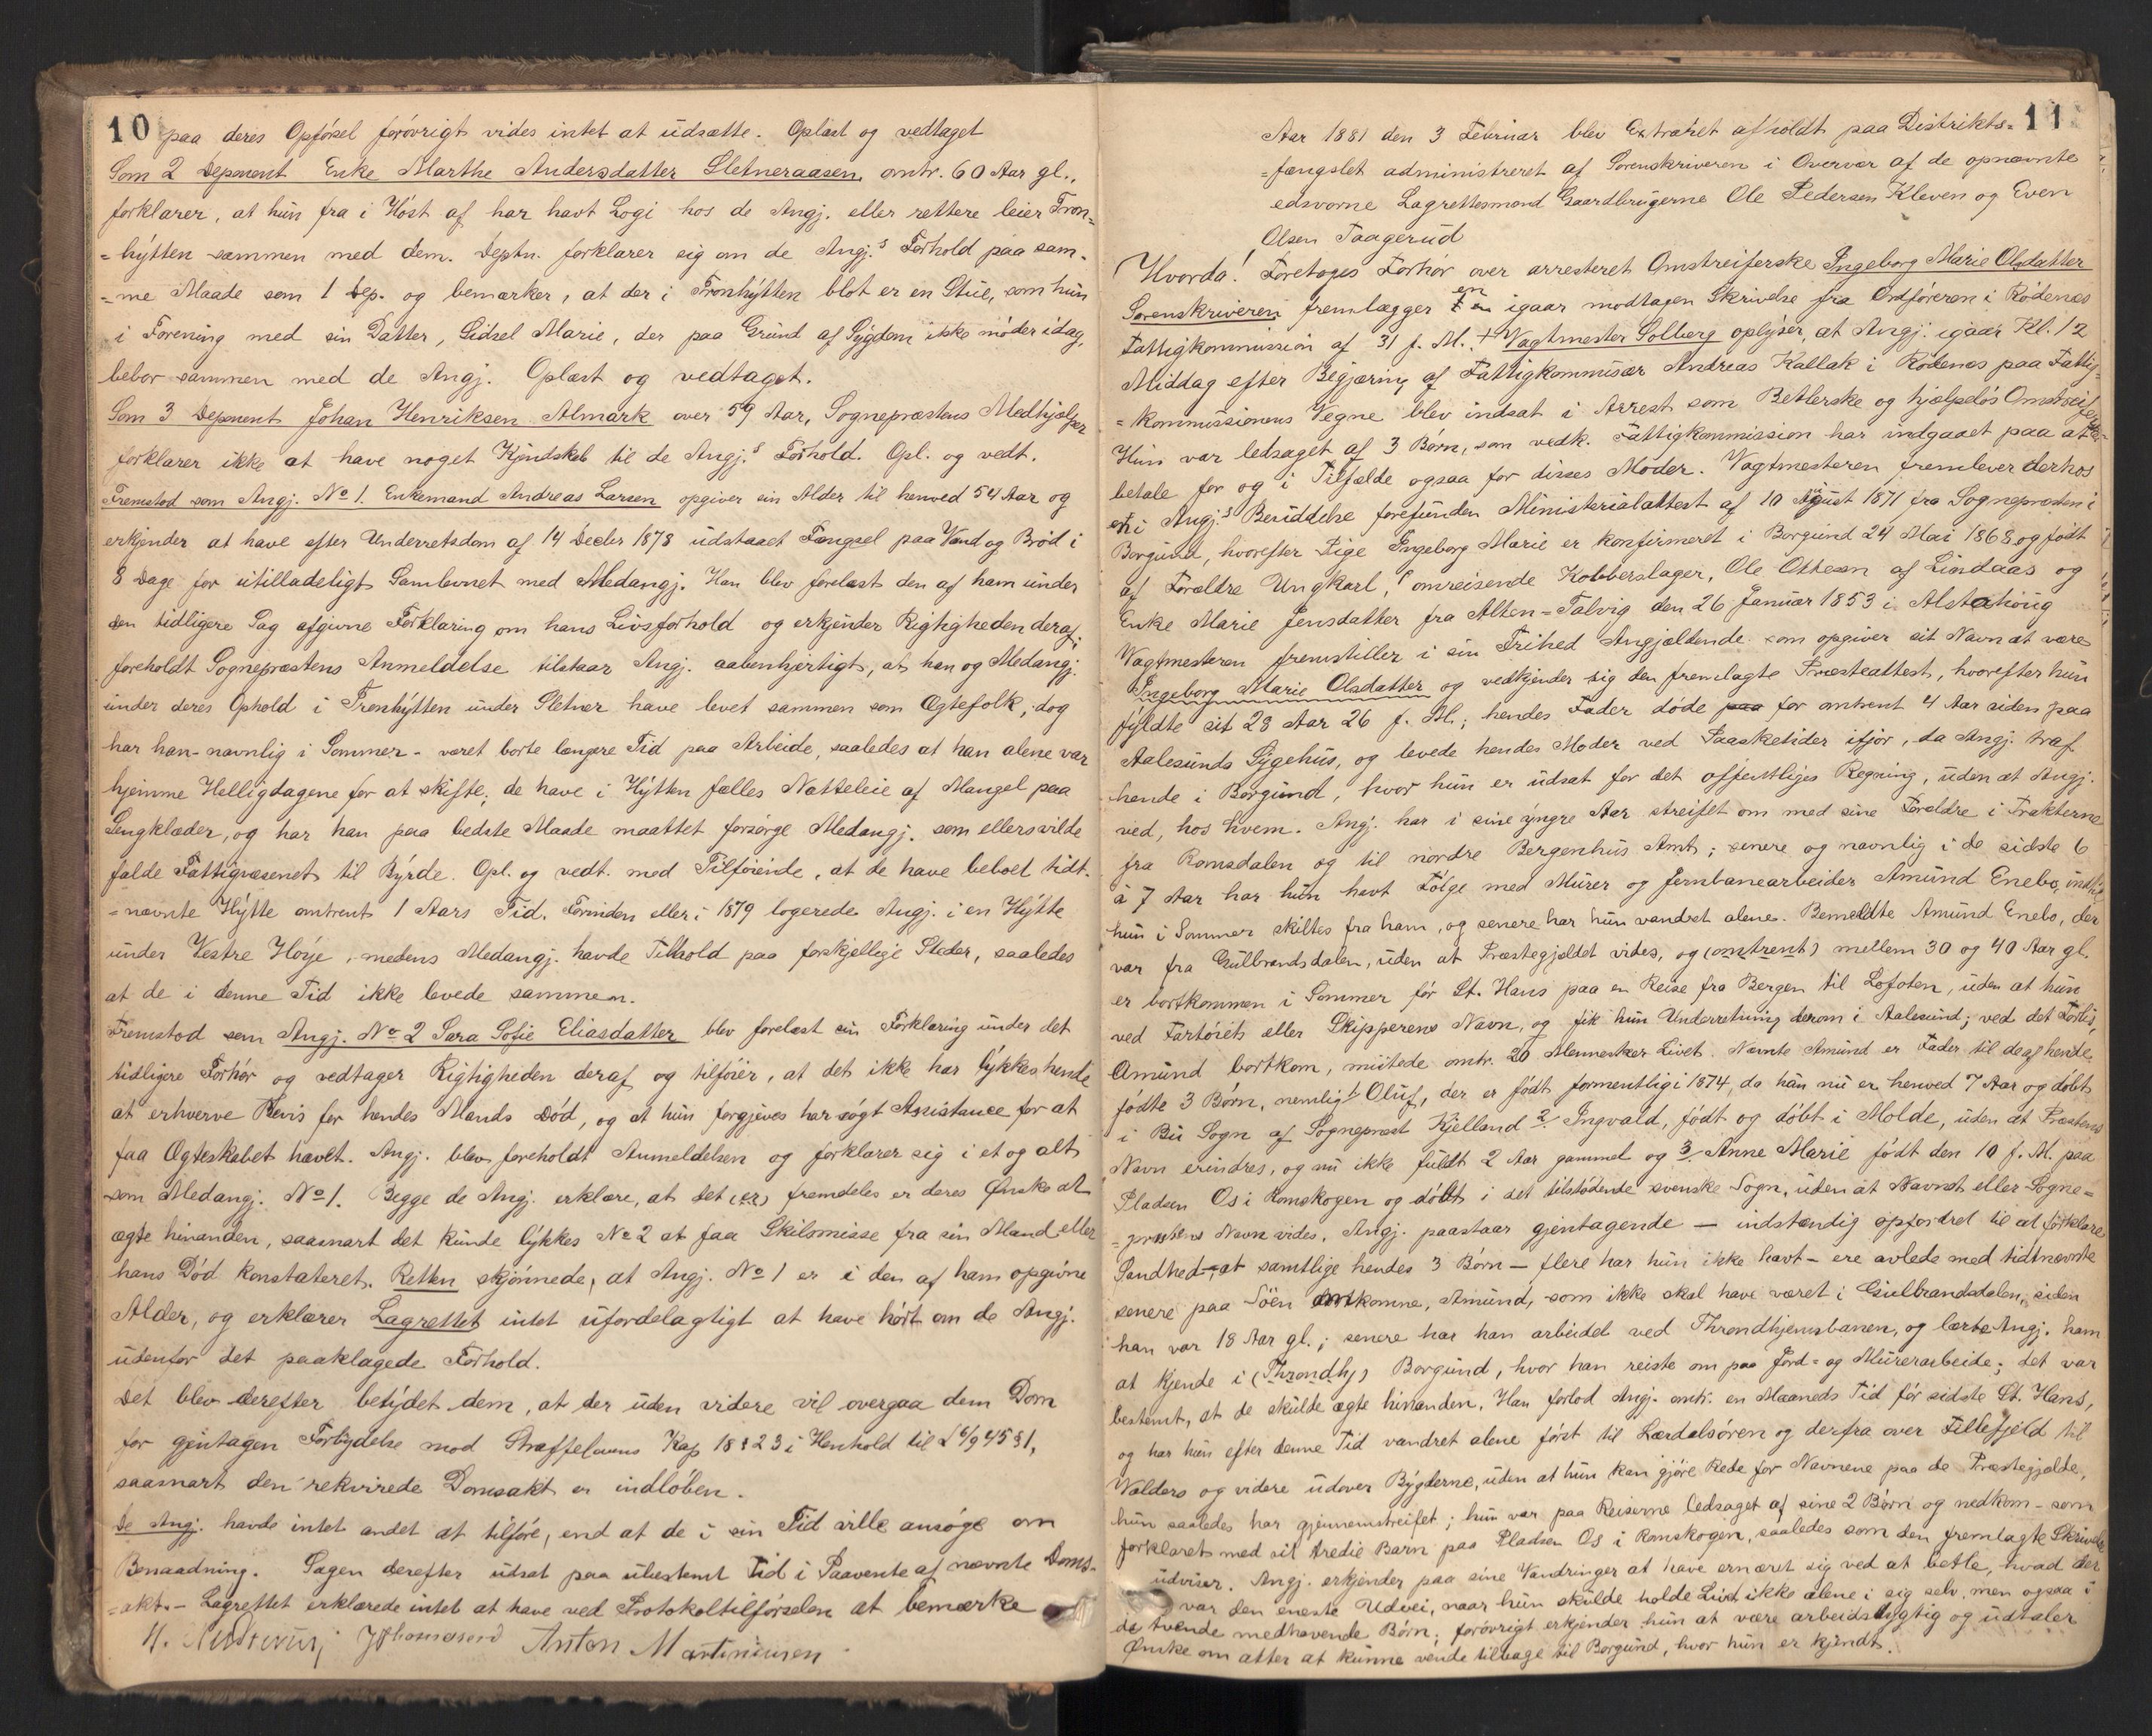 10 paa deres Opførsel forøvrigt vides intet at udsætte. Oplæst og vedtaget
Som 2 Deponent Enke Marthe Andersdatter Sletneraasen, omtr. 60 Aar gl.,
forklarer, at hun fra i Høst af har havt Logi hos de Angj. eller rettere leier Tron=
=hytten sammen med dem. Deptn. forklarer sig om de Angj.s Forhold paa sam-
=me Maade som 1 Dep. og bemærker, at der i Tronhytten blot er en Stue, som hun
i Forening med sin Datter, Sidsel Marie, der paa Grund af Sygdom ikke møder idag,
bebor sammen med de Angj. Oplæst og vedtaget.
Som 3 Deponent Johan Henriksen Almark over 59 Aar, Sognepræstens Medhjælper
forklarer ikke at have noget Kjendskab til de Angj.s Forhold. Opl. og vedt.
Fremstod som Angj. No 1. Enkemand Andreas Larsen opgiver sin Alder til henved 54 Aar og
erkjender at have efter Underretsdom af 14 Decbr 1878 udstaaet Fængsel paa Vand og Brød i
8 Dage for utilladeligt Samlevnet med Medangj. Han blev forelæst den af ham under
den tidligere Sag afgivne Forklaring om hans Livsforhold og erkjender Rigtigheden deraf;
foreholdt Sognepræstens Anmeldelse tilstaar Angj. aabenhjertigt, at han og Medangj.
under deres Ophold i Tronhytten under Sletner have levet sammen som Ægtefolk, dog
har han - navnlig i Sommer - været borte længere Tid paa Arbeide, saaledes at han alene var
hjemme Helligdagene for at skifte; de have i Hytten fælles Natteleie af Mangel paa
Sengklæder, og har han paa bedste Maade maattet forsørge Medangj. som ellers vilde
falde Fattigvæsenet til Byrde. Opl. og vedt. med Tilføiende, at de have beboet tidt-
=nævnte Hytte omtrent 1 Aars Tid. Forinden eller i 1879 logerede Angj. i en Hytte
under Vestre Høye, medens Medangj. havde Tilhold paa forskjellige Steder, saaledes
at de i denne Tid ikke levede sammen.
Fremstod som Angj. No 2 Sara Sofie Eliasdatter blev forelæst sin Forklaring under det
tidligere Forhør og vedtager Rigtigheden deraf og tilføier, at det ikke har lykkes hende
at erhverve Bevis for hendes Mands Død, og at hun forgjæves har søgt Assistance for at
faa Ægteskabet hævet. Angj. blev foreholdt Anmeldelsen og forklarer sig i et og alt
som Medangj. No 1. Begge de Angj. erklære, at det (er) fremdeles er deres Ønske at
ægte hinanden, saasnart det kunde lykkes No 2 at faa Skilsmisse fra sin Mand eller
hans Død konstateret. Retten skjønnede, at Angj. No 1 er i den af ham opgivne
Alder, og erklærer Lagrettet intet ufordelagtigt at have hørt om de Angj.
udenfor det paaklagede Forhold.
Det blev derefter betydet dem, at der uden videre vil overgaa dem Dom
for gjentagen Forbrydelse mod Straffelovens Kap 18 § 23 i Henhold til L 6/9 45 § 1,
saasnart den rekvirede Domsakt er indløben.
De Angj. havde intet andet at tilføre, end at de i sin Tid ville ansøge om
Benaadning. Sagen derefter udsat paa ubestemt Tid i Paavente af nævnte Doms-
=akt. - Lagrettet erklærede intet at have ved Protokoltilførselen at bemærke
JThomesend Anton Martiniusen
11
Aar 1881 den 3 Februar blev Extraret afholdt paa Distrikts=
=fængslet administreret af Sorenskriveren i Overvær af de opnævnte
edsvorne Lagrettesmænd Gaardbrugerne Ole Pedersen Kleven og Even
Olsen Taagerud
Hvorda! Foretages Forhør over arresteret Omstreiferske Ingeborg Marie Olsdatter
Sorenskriveren fremlægger en igaar modtagen Skrivelse fra Ordføreren i Rødenes
Fattigkommission af 31 f. M. + Vagtmester Solberg oplyser, at Angj. igaar Kl. 12
Middag efter Begjæring af Fattigkommisær Andreas Kallak i Rødenes paa Fattig=
=kommissionens Vegne blev indsat i Arrest som Betlerske og hjælpeløs Omstreiferske
Hun var ledsaget af 3 Børn, som vedk. Fattigkommission har indgaaet paa at
betale for og i Tilfælde ogsaa for disses Moder. Vagtmesteren fremlever derhos
en i Angj.s Besiddelse forefunden Ministerialattest af 10 August 1871 fra Sognepræsten i
Borgund, hvorefter Pige Ingeborg Marie er konfirmeret i Borgund 24 Mai 1868 og født
af Forældre Ungkarl, omreisende Kobberslager, Ole Ottesen af Lindaas og
Enke Marie Jensdatter fra Alten-Talvig den 26 Januar 1853 i Alstahoug
Vagtmesteren fremstiller i sin Frihed Angjældende som opgiver sit Navn at være
Ingeborg Marie Olsdatter og vedkjender sig den fremlagte Præsteattest, hvorefter hun
fyldte sit 28 Aar 26 f. M.; hendes Fader døde paa for omtrent 4 Aar siden paa
Aalesunds Sygehus, og levede hendes Moder ved Paasketider ifjor, da Angj. traf
hende i Borgund, hvor hun er udsat for det offentliges Regning, uden at Angj.
ved, hos hvem. Angj. har i sine yngre Aar streifet om med sine Forældre i Trakterne
fra Romsdalen og til nordre Bergenhus Amt; senere og navnlig i de sidste 6
à 7 Aar har hun havt Følge med Murer og Jernbanearbeider Amund Enebo, indtil
hun i Sommer skiltes fra ham, og senere har hun vandret alene. Bemeldte Amund Enebo, der
var fra Gulbrandsdalen, uden at Præstegjældet vides, og (omtrent) mellem 30 og 40 Aar gl.
er bortkommen i Sommer før St. Hans paa en Reise fra Bergen til Lofoten, uden at hun
ved Fartøiets eller Skipperens Navn, og fik hun Underretning derom i Aalesund; ved det Forlis,
Amund bortkom, mistede omtr. 20 Mennesker Livet. Nævnte Amund er Fader til de af hende
fødte 3 Børn, nemlig 1 Oluf, der er født formentlig i 1874, da han nu er henved 7 Aar og døbt
i Bu Sogn af Sognepræst Kjelland 2 Ingvald, født og døbt i Molde, uden at Præstens
Navn erindres, og nu ikke fuldt 2 Aar gammel og 3. Anne Marie født den 10 f. M. paa
Pladsen Os i Romskogen og døbt i det tilstødende svenske Sogn, uden at Navnet eller Sogne=
=præstens Navn vides. Angj. paastaar gjentagende - indstændig opfordret til at forklare
Sandhed -, at samtlige hendes 3 Børn - flere har hun ikke havt - ere avlede med tidtnævnte
senere paa Søen omkomne, Amund, som ikke skal have været i Gulbrandsdalen, siden
han var 18 Aar gl.; senere har han arbeidet ved Throndhjemsbanen, og lærte Angj. ham
at kjende i (Throndhj) Borgund, hvor han reiste om paa Jord- og Murerarbeide; det var
bestemt, at de skulde ægte hinanden. Han forlod Angj. omtr. en Maaneds Tid før sidste St. Hans,
og har hun efter denne Tid vandret alene først til Lærdalsøren og derfra over Fillefjeld til
Valders og videre udover Bygderne, uden at hun kan gjøre Rede for Navnene paa de Præstegjælde,
hun saaledes har gjennemstreifet; hun var paa Reiserne ledsaget af sine 2 Børn og nedkom - som
forklaret med sit tredie Barn paa Pladsen Os i Romskogen, saaledes som den fremlagte Skrivelse
udviser. Angj. erkjender paa sine Vandringer at have ernæret sig ved at betle, hvad der
var den eneste Udvei, naar hun skulde holde Livet ikke alene i sig selv, men ogsaa i
de tvende medhavende Børn; forøvrigt erkjender hun at være arbeidsdygtig og udtaler
Ønske om atter at kunne vende tilbage til Borgund, hvor hun er kjendt.